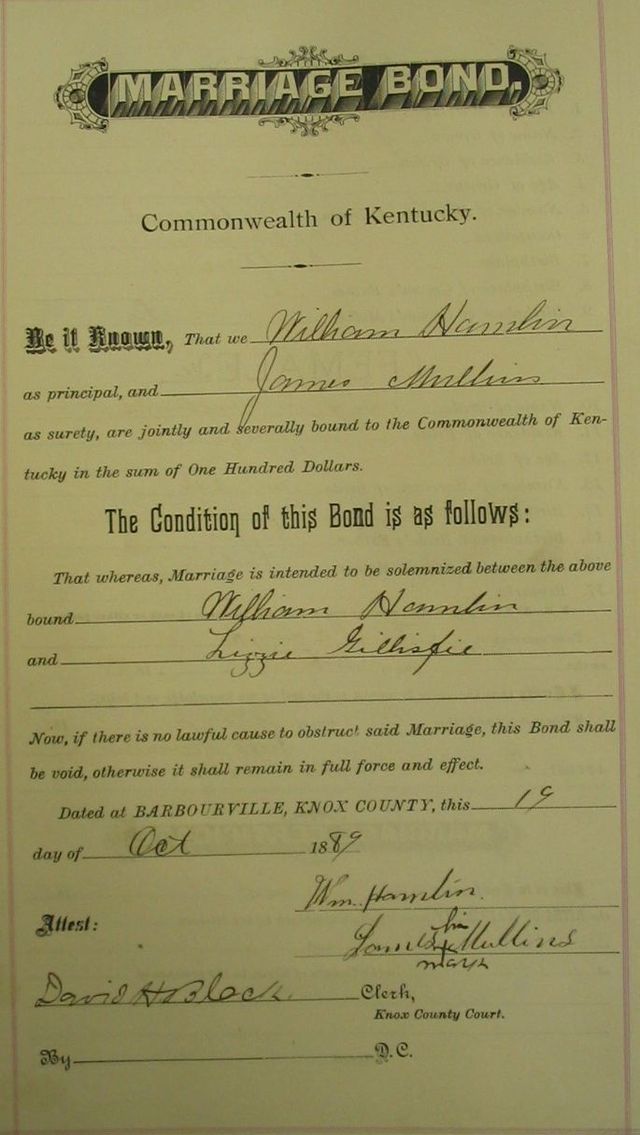 MARRIAGE BOND,
Commonwealth of Kentucky.
Be it Known, That we William Hamlin
as principal, and James Mullins
as surety, are jointly and severally bound to the Commonwealth of Ken-
tucky in the sum of One Hundred Dollars.
The Condition of this Bond is as follows:
That whereas, Marriage is intended to be solemnized between the above
bound William Hamlin
and Lizzie Gillispie
Now, if there is no lawful cause to obstruct said Marriage, this Bond shall
be void, otherwise it shall remain in full force and effect.
Dated at BARBOURVILLE, KNOX COUNTY, this 19
day of Oct 1889
Wm. Hamlin.
Attest:
his
James x Mullins
mark
David H Black Clerk,
Knox County Court.
By D.C.